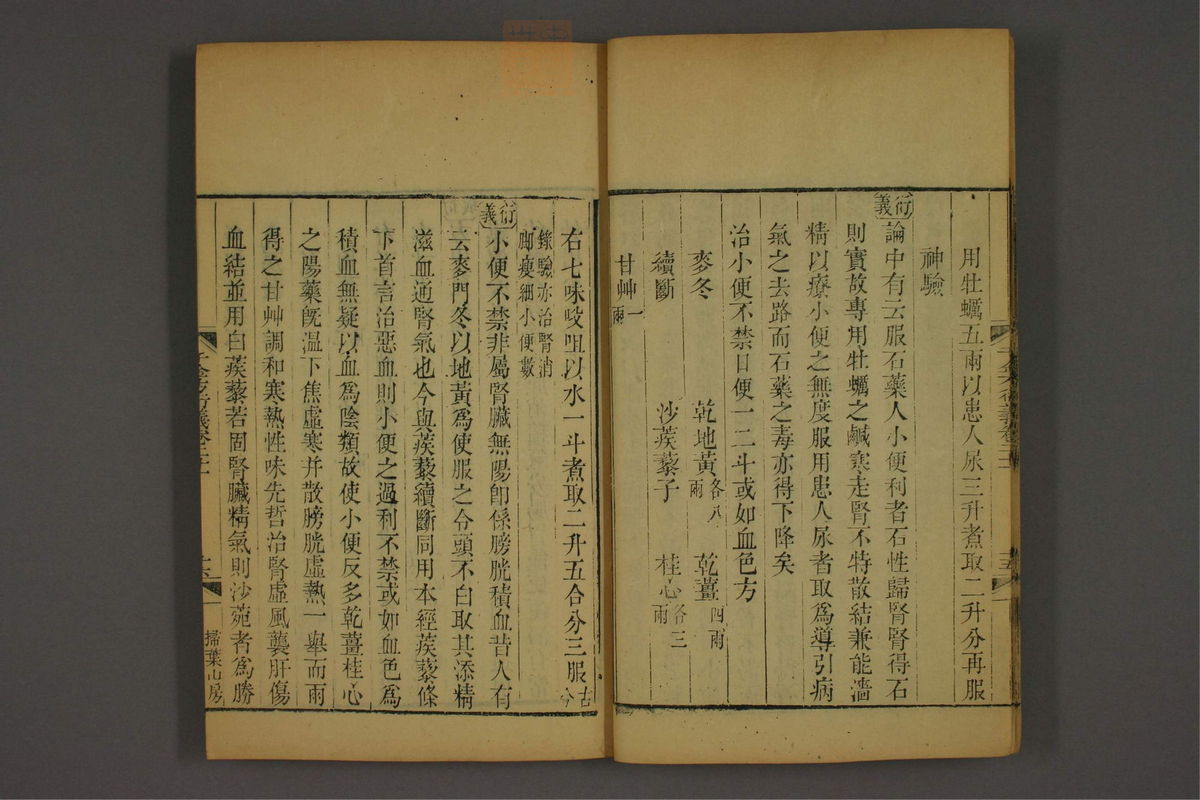 用牡蠣五兩以患人尿三升煮取二升分再服
神驗
衍義
論中有云服石藥人小便利者石性歸腎腎得石
則實故專用牡蠣之鹹寒走腎不特散結兼能濇
精以療小便之無度服用患人尿者取爲導引病
氣之去路而石藥之毒亦得下降矣
治小便不禁日便一二斗或如血色方
麥冬 乾地黃各八兩 乾薑四兩
續斷 沙蒺藜子 桂心各三兩
甘艸一兩
右七味㕮咀以水一斗煮取二升五合分三服古今
錄驗亦治腎消
腳瘦細小便數
衍義
小便不禁非屬腎臟無陽卽係膀胱積血昔人有
云麥門冬以地黃爲使服之令頭不白取其添精
滋血通腎氣也今與蒺藜續斷同用本經蒺藜條
下首言治惡血則小便之過利不禁或如血色爲
積血無疑以血爲陰類故使小便反多乾薑桂心
之陽藥旣溫下焦虛寒并散膀胱虛熱一舉而兩
得之甘艸調和寒熱性味先哲治腎虛風襲肝傷
血結並用白蒺藜若固腎臟精氣則沙苑者爲勝
掃葉山房